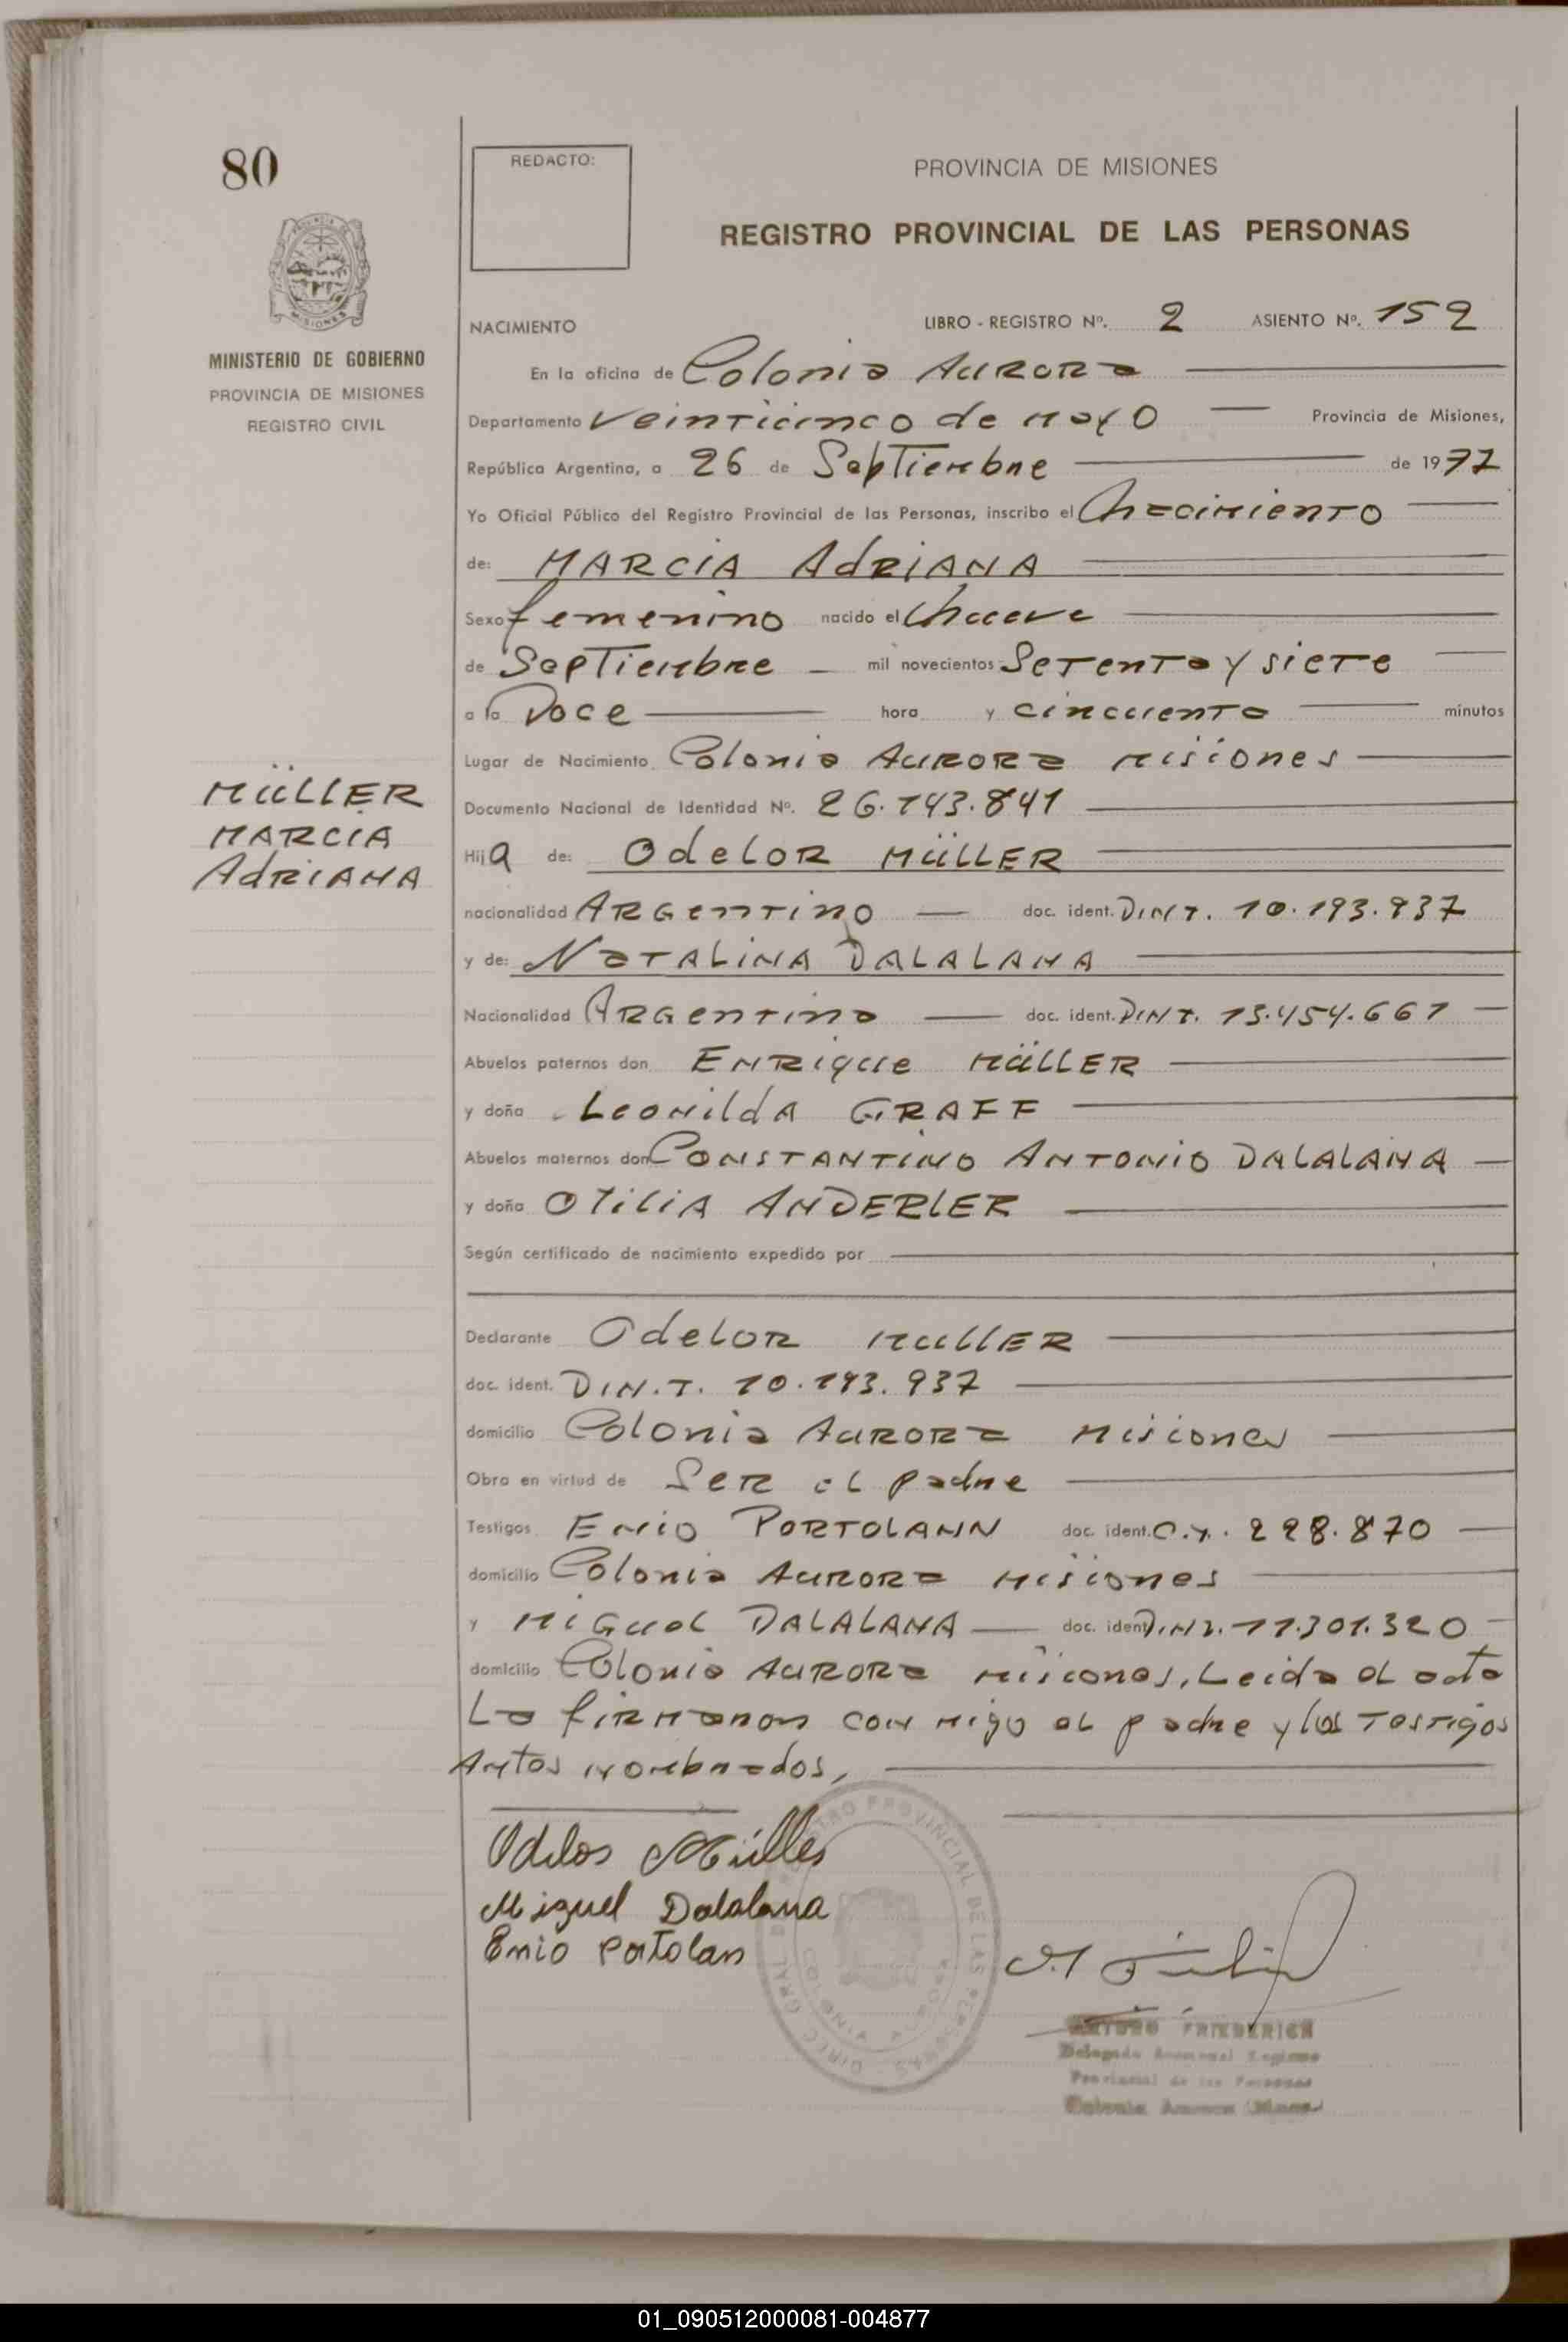 80
REDACTO:
PROVINCIA DE MISIONES
REGISTRO PROVINCIAL DE LAS PERSONAS
MINISTERIO DE GOBIERNO
PROVINCIA DE MISIONES
REGISTRO CIVIL
NACIMIENTO LIBRO - REGISTRO Nº. 2 ASIENTO Nº. 152
En la oficina de Colonia Aurora
Departamento Veinticinco de Mayo Provincia de Misiones,
República Argentina, a 26 de Septiembre de 1977
Yo Oficial Público del Registro Provincial de las Personas, inscribo el Nacimiento
de: MARCIA AdRIANA
Sexo femenino nacido el Nueve
de Septiembre mil novecientos Setenta y siete
a la Doce hora y cincuenta minutos
Lugar de Nacimiento Colonia Aurora Misiones
MÜLLER
MARCIA
AdRIANA
Documento Nacional de Identidad Nº. 26.143.841
Hija de: OdeLOR MÜLLER
nacionalidad Argentino doc. ident. D.N.I. 10.193.937
y de: NaTALINA DALALANA
Nacionalidad Argentina doc. ident. D.N.I. 13.454.661
Abuelos paternos don ENRIQUe MÜLLER
y doña LeonildA GRAFF
Abuelos maternos don CONSTANTINO ANTONIO DALALANA
y doña OTILIA ANDERLER
Según certificado de nacimiento expedido por
Declarante OdeLOR MULLER
doc. ident. D.N.I. 10.193.937
domicilio Colonia Aurora Misiones
Obra en virtud de Ser el padre
Testigos ENIO PORTOLANN doc. ident. C.Y. 228.870
domicilio Colonia Aurora Misiones
y MIGUeL DALALANA doc. ident D.N.I. 11.301.320
domicilio Colonia Aurora Misiones, Leida el acta
La firmaron con migo el padre y los Testigos
Antes nombrados,
Odelor Müller
Miguel Dalalana
Enio Portolan
DIREC. GRAL. DE REGISTRO PROVINCIAL DE LAS PERSONAS
COLONIA AURORA
ARTURO FRIEDERICH
Delegado Registro
Provincial de las Personas
Colonia Aurora
01_090512000081-004877